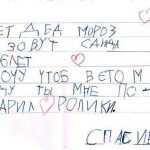 ЕТ ДЕД МОРОЗ
ЗОВУТ САША
ЛЕТ
ОЧУ ЧТОБ В ЕТО М
ЧУ ТЫ МНЕ ПО-
АРИЛ РОЛИКИ
СПАСИ